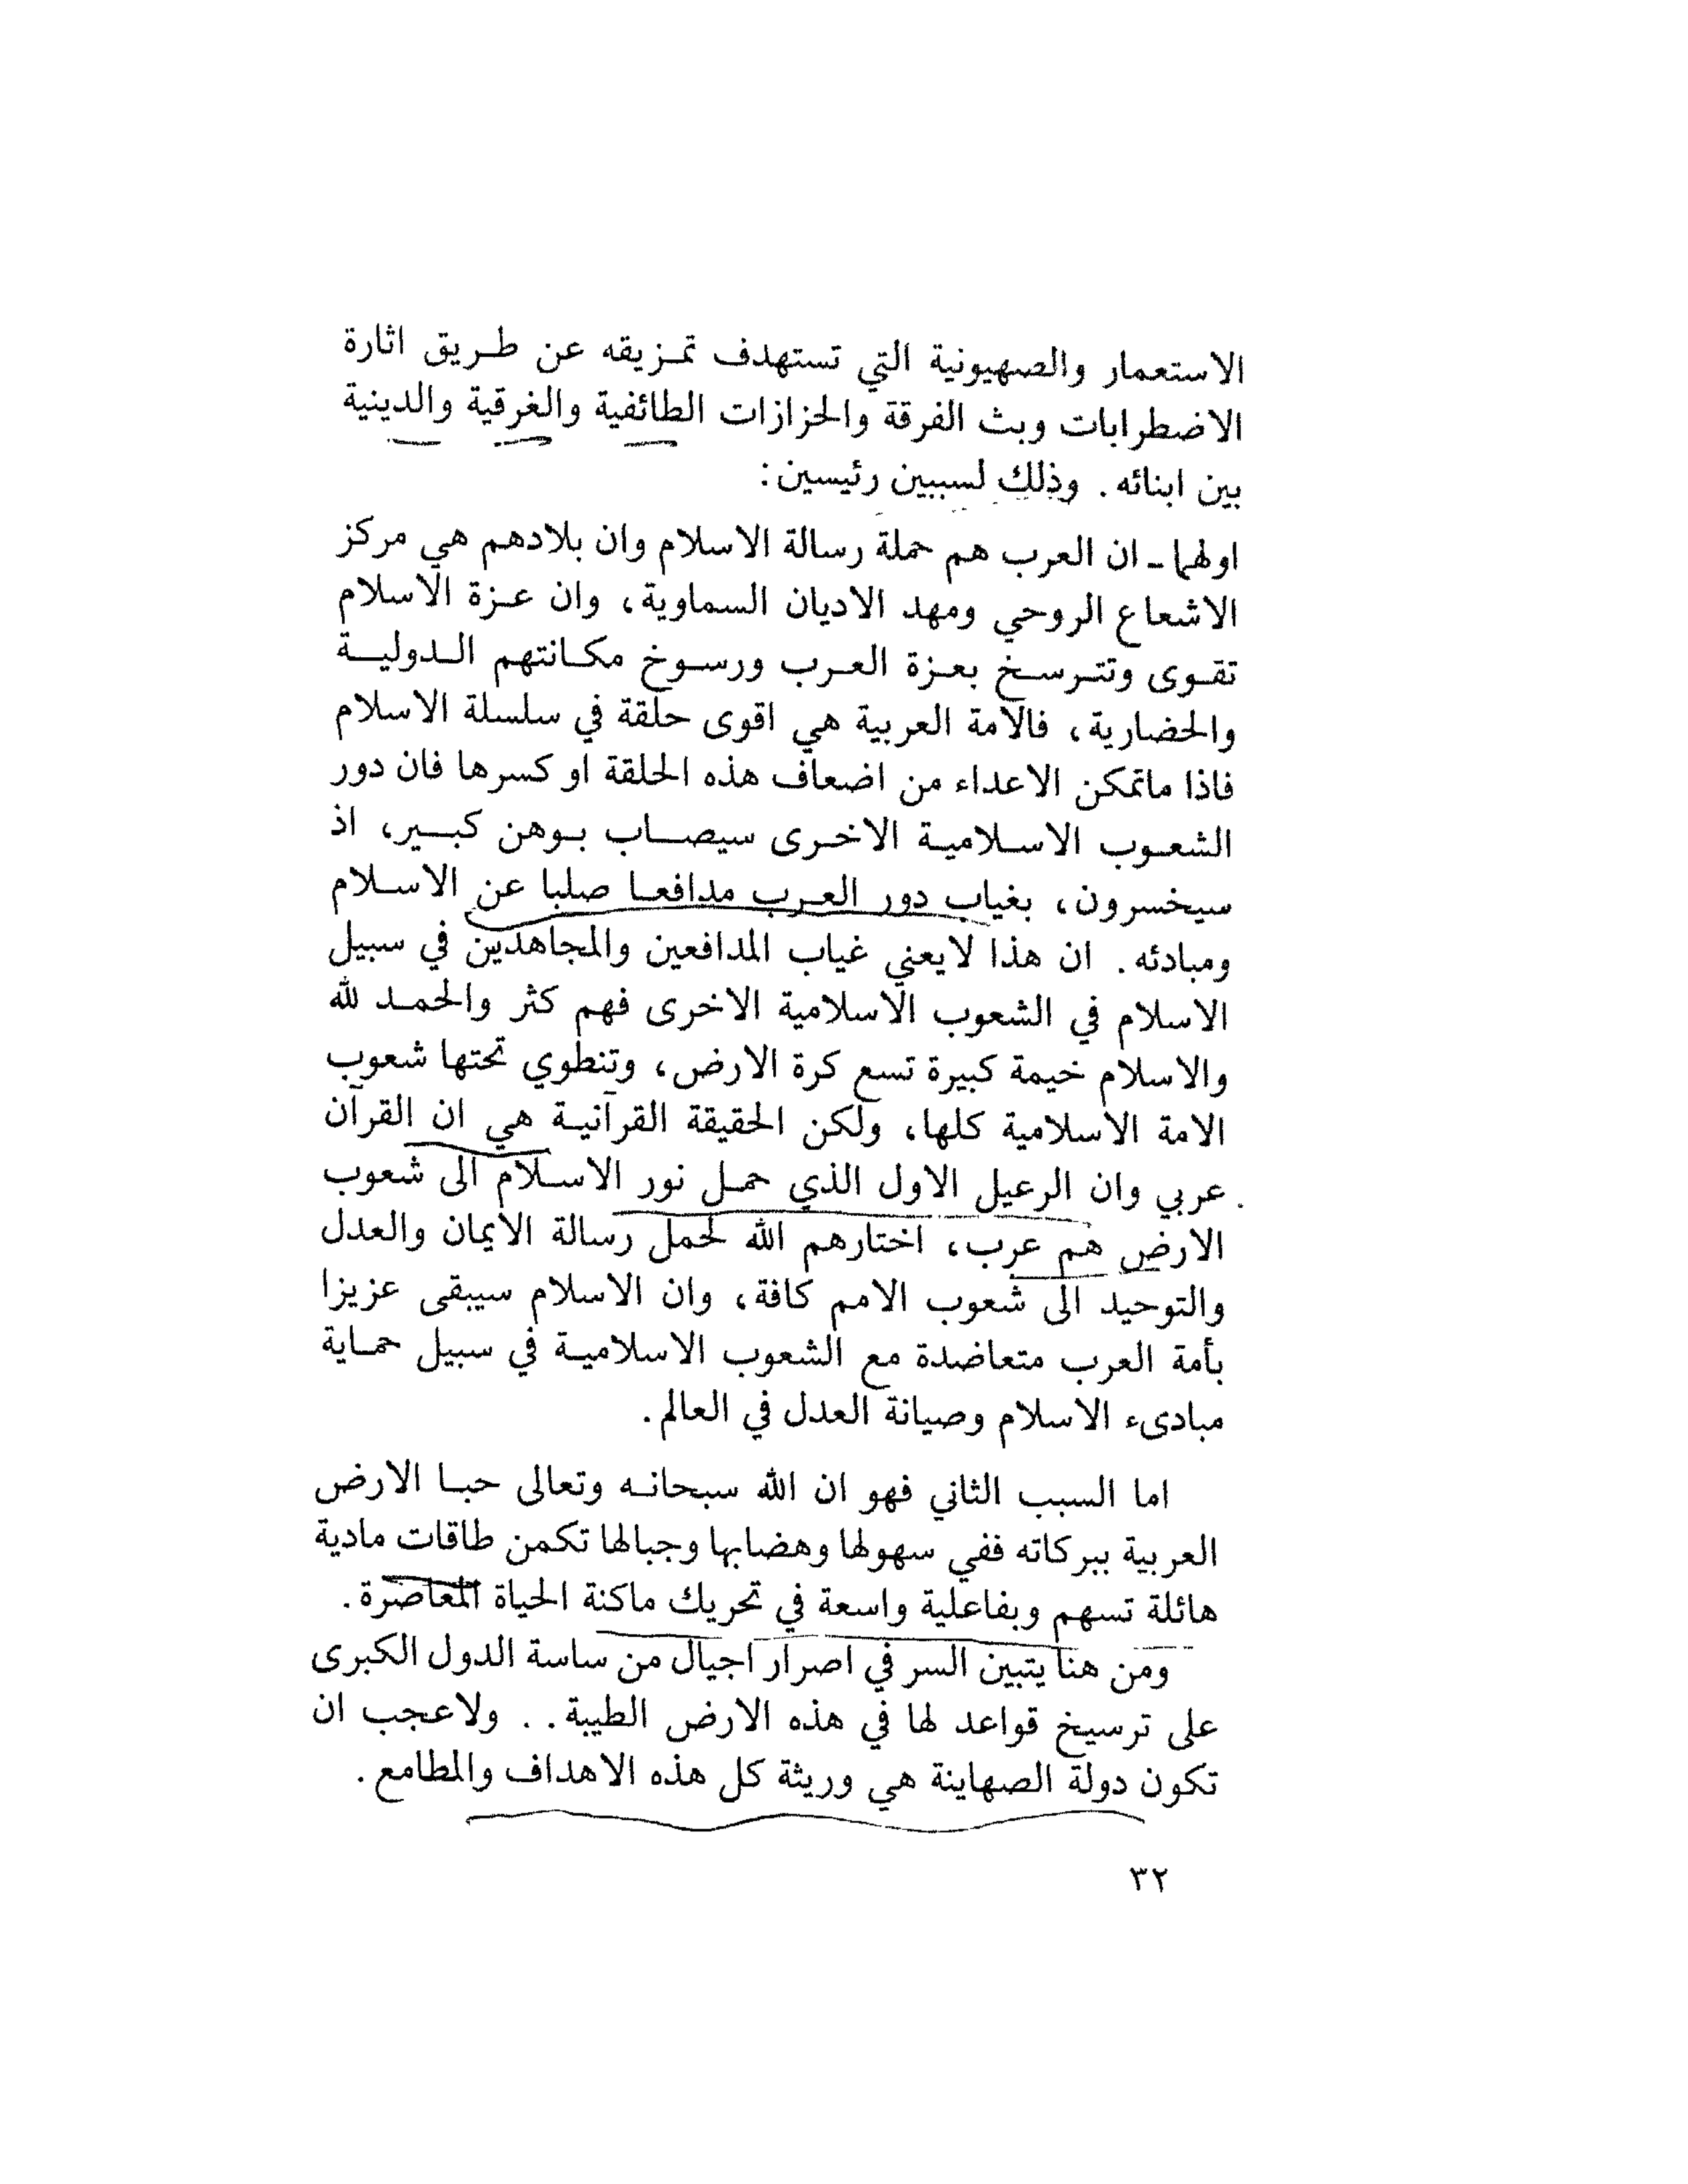 الاستعمار والصهيونية التي تستهدف تمـزيقه عن طـريق اثارة
الاضطرابات وبث الفرقة والحزازات الطائفية والغرقية والدينية
بين ابنائه . وذلك لسببين رئيسين :
اولهما ـ ان العرب هم حملة رسالة الاسلام وان بلادهم هي مركز
الاشعاع الروحي ومهد الاديان السماوية ، وان عـزة الاسلام
تقـوى وتتـرسـخ بعـزة العـرب ورسـوخ مكـانتهم الـدوليـة
والحضارية ، فالامة العربية هي اقوى حلقة في سلسلة الاسلام
فاذا ماتمكن الاعداء من اضعاف هذه الحلقة او كسرها فان دور
الشعـوب الاسـلاميـة الاخـرى سيصـاب بـوهن كبـير، اذ
سيخسرون ، بغياب دور العـرب مدافعـا صلبا عن الاسـلام
ومبادئه . ان هذا لايعني غياب المدافعين والمجاهدين في سبيل
الاسلام في الشعوب الاسلامية الاخرى فهم كثر والحمـد لله
والاسلام خيمة كبيرة تسع كرة الارض ، وتنطوي تحتها شعوب
الامة الاسلامية كلها ، ولكن الحقيقة القرآنيـة هي ان القرآن
عربي وان الرعيل الاول الذي حمـل نور الاسـلام الى شعوب
الارض هم عرب ، اختارهم الله لحمل رسالة الايمان والعدل
والتوحيد الى شعوب الامم كافة ، وان الاسلام سيبقى عزيزا
بأمة العرب متعاضدة مع الشعوب الاسلاميـة في سبيل حمـاية
مبادىء الاسلام وصيانة العدل في العالم .
اما السبب الثاني فهو ان الله سبحانـه وتعالى حبـا الارض
العربية ببركاته ففي سهولها وهضابها وجبالها تكمن طاقات مادية
هائلة تسهم وبفاعلية واسعة في تحريك ماكنة الحياة المعاصرة .
ومن هنا يتبين السر في اصرار اجيال من ساسة الدول الكبرى
على ترسيخ قواعد لها في هذه الارض الطيبة . . ولاعجب ان
تكون دولة الصهاينة هي وريثة كل هذه الاهداف والمطامع .
٣٢